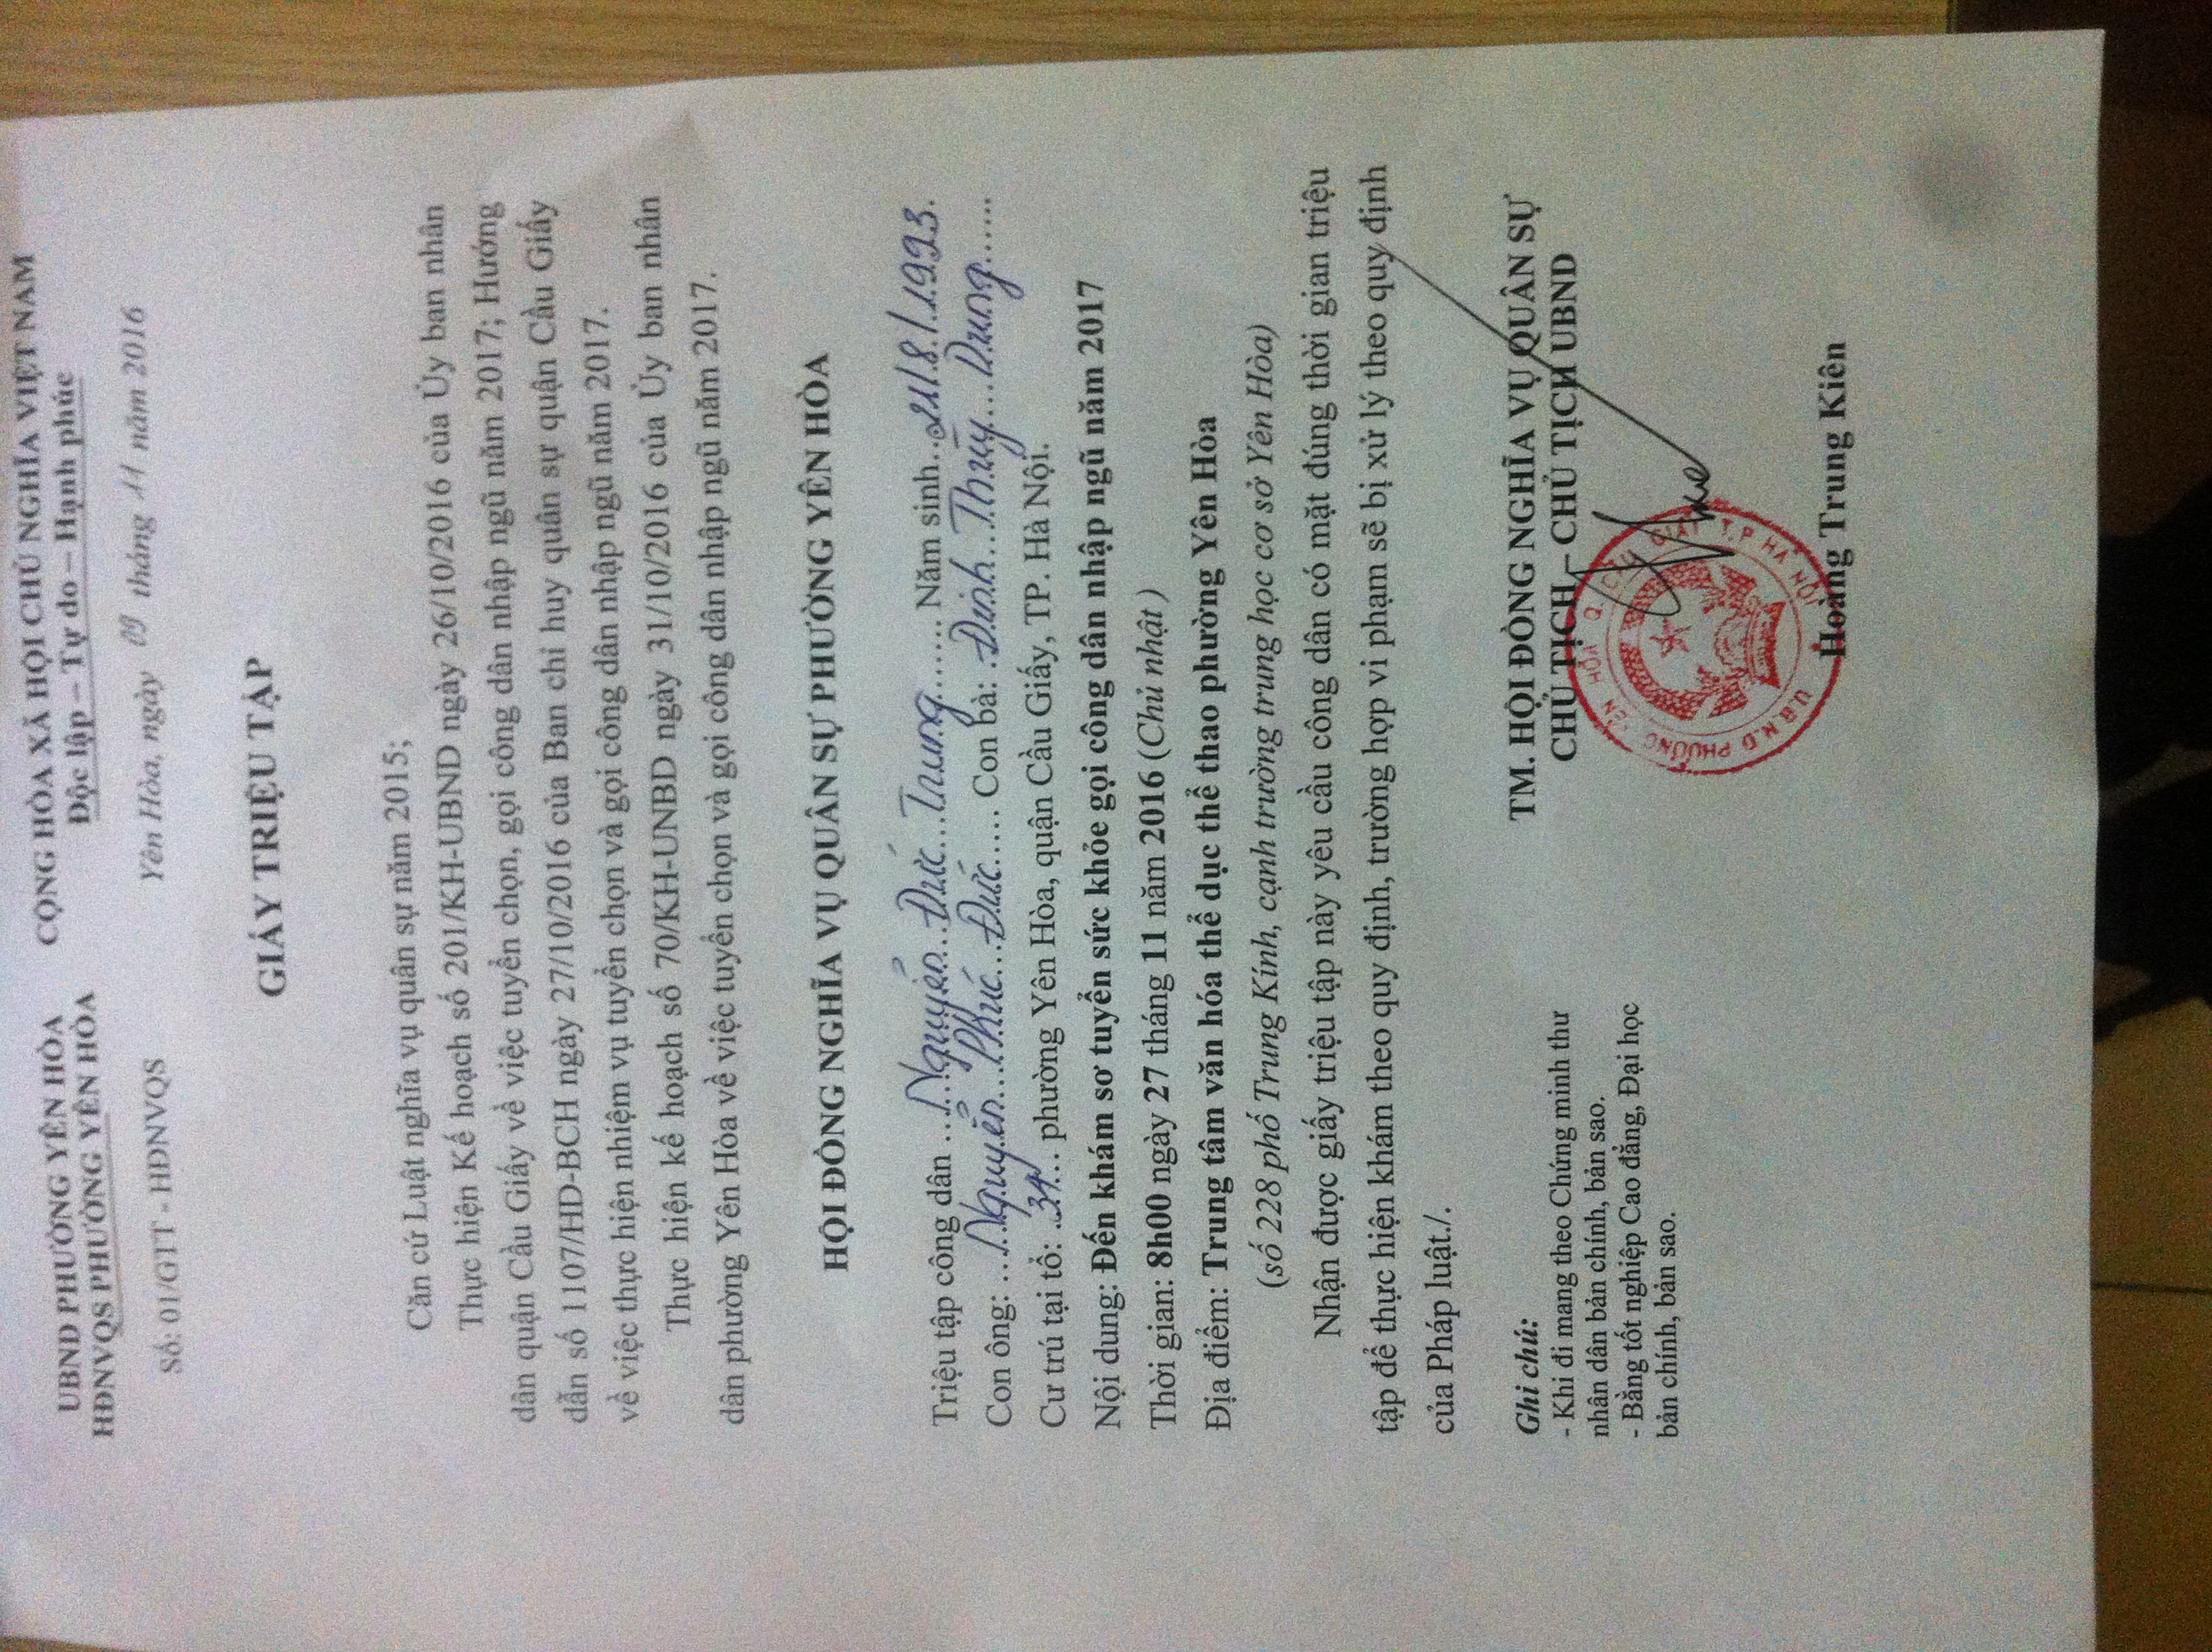 UBND PHƯỜNG YÊN HÒA
HĐNVQS PHƯỜNG YÊN HÒA
CỘNG HÒA XÃ HỘI CHỦ NGHĨA VIỆT NAM
Độc lập – Tự do – Hạnh phúc
Số: 01/GTT - HĐNVQS
Yên Hòa, ngày 09 tháng 11 năm 2016
GIẤY TRIỆU TẬP
Căn cứ Luật nghĩa vụ quân sự năm 2015;
Thực hiện Kế hoạch số 201/KH-UBND ngày 26/10/2016 của Ủy ban nhân
dân quận Cầu Giấy về việc tuyển chọn, gọi công dân nhập ngũ năm 2017; Hướng
dẫn số 1107/HD-BCH ngày 27/10/2016 của Ban chỉ huy quân sự quận Cầu Giấy
về việc thực hiện nhiệm vụ tuyển chọn và gọi công dân nhập ngũ năm 2017.
Thực hiện kế hoạch số 70/KH-UNBD ngày 31/10/2016 của Ủy ban nhân
dân phường Yên Hòa về việc tuyển chọn và gọi công dân nhập ngũ năm 2017.
HỘI ĐỒNG NGHĨA VỤ QUÂN SỰ PHƯỜNG YÊN HÒA
Triệu tập công dân ...Nguyễn Đức Trung....... Năm sinh..21/8/1993.
Con ông: ...Nguyễn Phúc Đức..... Con bà: .Đinh Thùy Dung......
Cư trú tại tổ: .34... phường Yên Hòa, quận Cầu Giấy, TP. Hà Nội.
Nội dung: Đến khám sơ tuyển sức khỏe gọi công dân nhập ngũ năm 2017
Thời gian: 8h00 ngày 27 tháng 11 năm 2016 (Chủ nhật )
Địa điểm: Trung tâm văn hóa thể dục thể thao phường Yên Hòa
(số 228 phố Trung Kính, cạnh trường trung học cơ sở Yên Hòa)
Nhận được giấy triệu tập này yêu cầu công dân có mặt đúng thời gian triệu
tập để thực hiện khám theo quy định, trường hợp vi phạm sẽ bị xử lý theo quy định
của Pháp luật./.
Ghi chú:
- Khi đi mang theo Chứng minh thư
nhân dân bản chính, bản sao.
- Bằng tốt nghiệp Cao đẳng, Đại học
bản chính, bản sao.
TM. HỘI ĐỒNG NGHĨA VỤ QUÂN SỰ
CHỦ TỊCH – CHỦ TỊCH UBND
U.B.N.D PHƯỜNG YÊN HÒA Q. CẦU GIẤY T.P HÀ NỘI
Hoàng Trung Kiên